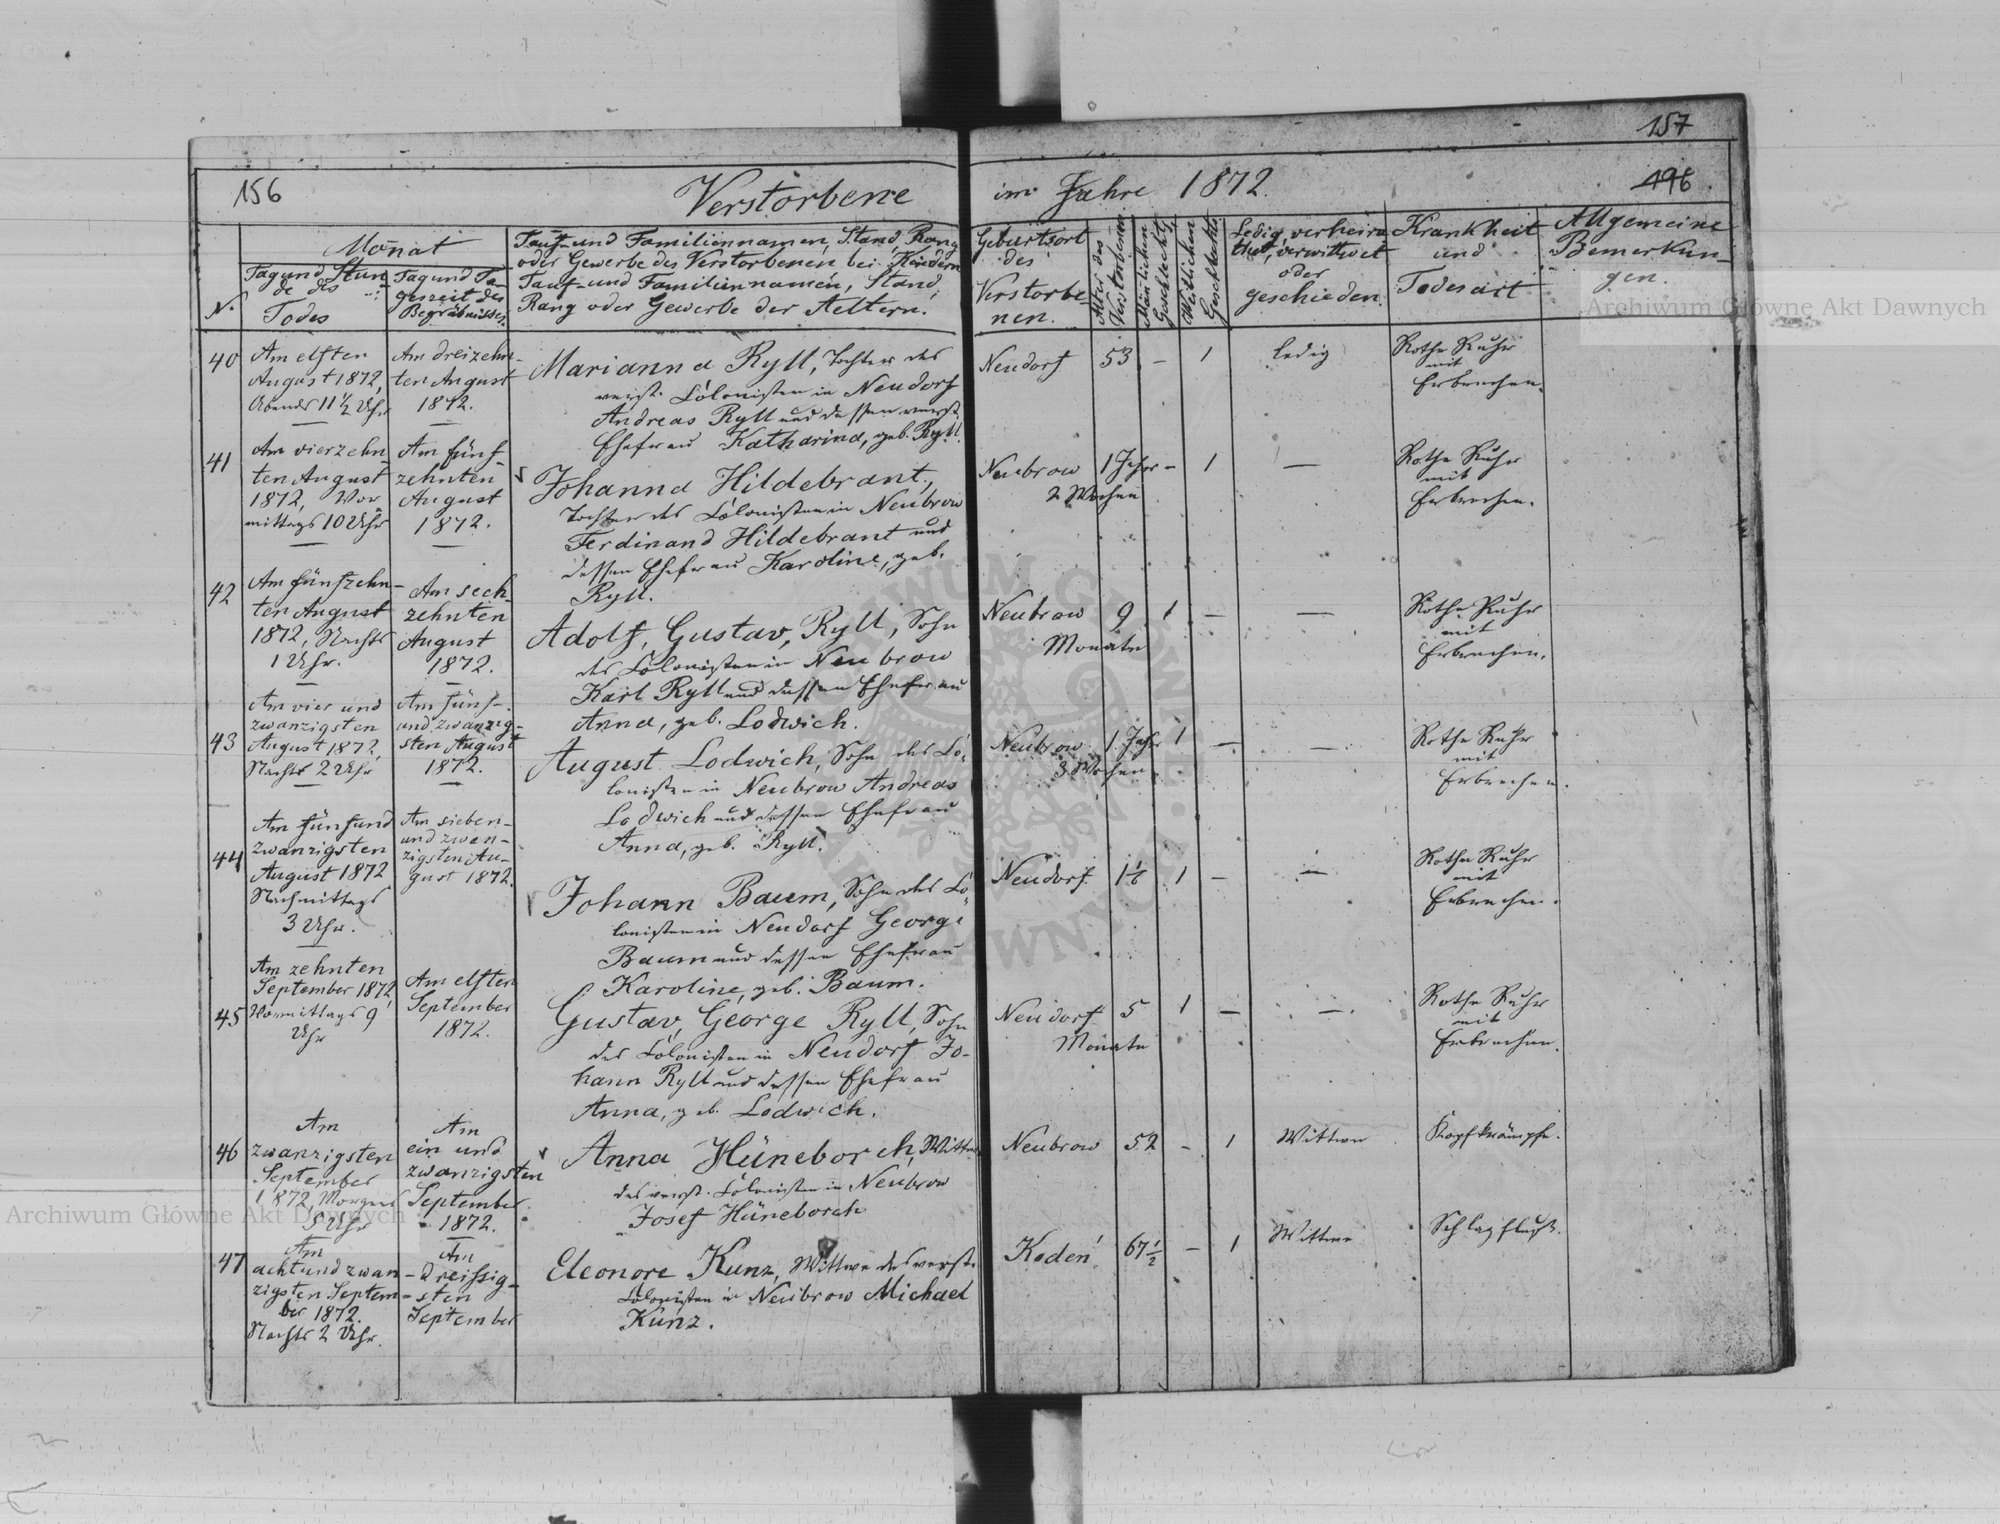 157
156
Verstorbene
im Jahre 1872.
496
Monat
N.
Tag und Stun-
de des
Todes
Tag und Ta-
geszeit des
Begräbnisses.
Tauf- und Familiennamen, Stand, Rang
oder Gewerbe des Verstorbenen, bei Kindern
Tauf- und Familiennamen, Stand,
Rang oder Gewerbe der Aeltern.
Geburtsort
des
Verstorbe-
nen.
Alter des
Verstorbenen
Mänlichen
Geschlechts
Weiblichen
Geschlechts
Ledig, verheira-
thet, verwittwet
oder
geschieden.
Krankheit
und
Todesart
Allgemeine
Bemerkun-
gen.
40
Am elften
August 1872,
Abends 11 1/2 Uhr
Am dreizehn-
ten August
1872.
Marianna Ryll, Tochter des
verst. Colonisten in Neudorf
Andreas Ryll und dessen verst.
Ehefrau Katharina, geb. Ryll.
Neudorf 53 – 1 ledig
Rothe Ruhr
mit
Erbrechen.
41
Am vierzehn-
ten August
1872, Vor-
mittags 10 Uhr
Am fünf-
zehnten
August
1872.
Johanna Hildebrant,
Tochter des Colonisten in Neubrow
Ferdinand Hildebrant und
dessen Ehefrau Karoline, geb.
Ryll.
Neubrow 1 Jahr – 1 —
2 Wochen
Rothe Ruhr
mit
Erbrechen.
42
Am fünfzehn-
ten August
1872, Nachts
1 Uhr.
Am sech-
zehnten
August
1872.
Adolf, Gustav, Ryll, Sohn
des Colonisten in Neubrow
Karl Ryll und dessen Ehefrau
Anna, geb. Lodwich.
Neubrow 9 1 — —
Monate
Rothe Ruhr
mit
Erbrechen.
43
Am vier und
zwanzigsten
August 1872
Nachts 2 Uhr
Am fünf-
und zwanzig-
sten August
1872.
August Lodwich, Sohn des Co-
lonisten in Neubrow Andreas
Lodwich und dessen Ehefrau
Anna, geb. Ryll.
Neubrow 1 Jahr 1 — —
3 Wochen
Rothe Ruhr
mit
Erbrechen.
44
Am fünfund
zwanzigsten
August 1872
Nachmittags
3 Uhr.
Am sieben-
und zwan-
zigsten Au-
gust 1872.
Johann Baum, Sohn des Co-
lonisten in Neudorf George
Baum und dessen Ehefrau
Karoline, geb. Baum.
Neudorf 1 1 — —
Rothe Ruhr
mit
Erbrechen.
45
Am zehnten
September 1872,
Vormittags 9
Uhr
Am elften
September
1872.
Gustav, George Ryll, Sohn
des Colonisten in Neudorf Jo-
hann Ryll und dessen Ehefrau
Anna, geb. Lodwich.
Neudorf 5 1 — —
Monate
Rothe Ruhr
mit
Erbrechen.
46
Am
zwanzigsten
September
1872, Morgens
5 Uhr
Am
ein und
zwanzigsten
September
1872.
Anna Hüneborch, Wittwe
des verst. Colonisten in Neubrow
Josef Hüneborch
Neubrow 52 – 1 Wittwe
Kopfkrämpfe.
47
Am
acht und zwan-
zigsten Septem-
ber 1872.
Nachts 2 Uhr.
Am
dreissig-
sten
September
Eleonore Kunz, Wittwe des verst.
Colonisten in Neubrow Michael
Kunz.
Koden 67 1/2 – 1 Wittwe
Schlagfluß.
Archiwum Główne Akt Dawnych
Archiwum Główne Akt Dawnych